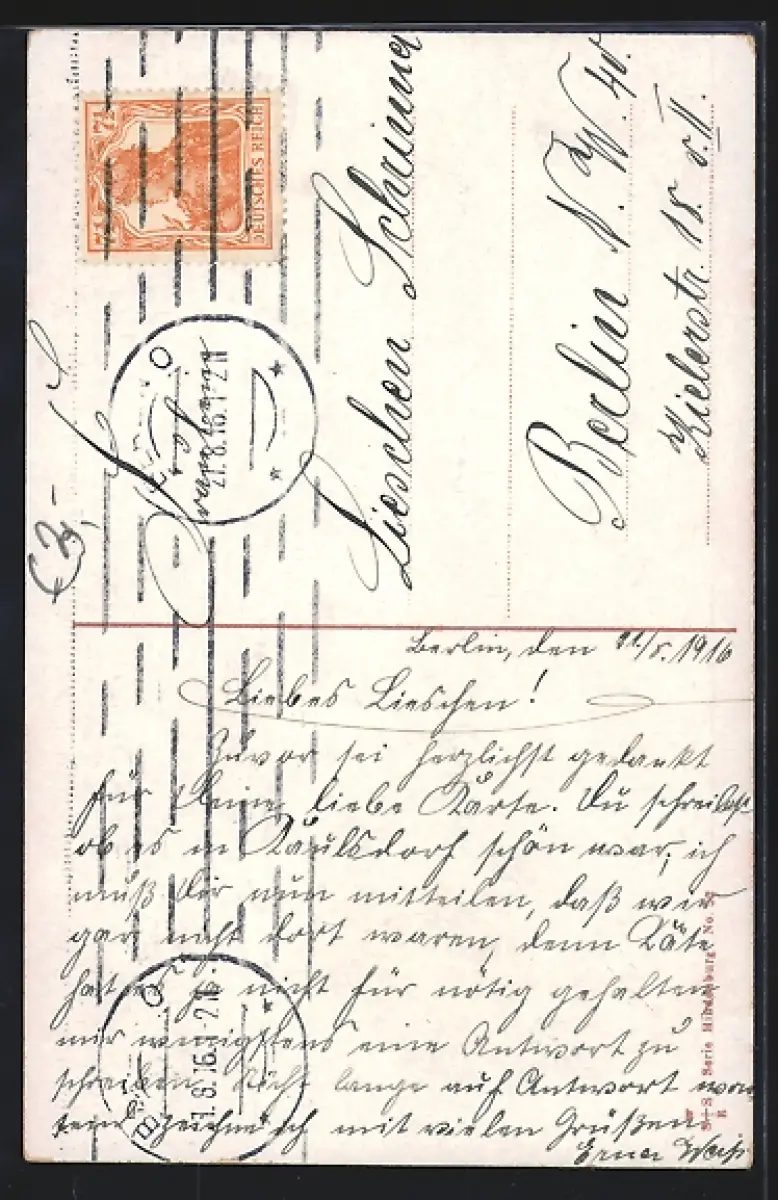 7½ 7½
DEUTSCHES REICH
Fräulein
Lieschen Schrimmer
Berlin N.W. 40.
Kielerstr. 18. v. II.
21.8.16.1-2N
€3,-
Berlin, den 21./8.1916
Liebes Lieschen!
Zuvor sei herzlichst gedankt
für Deine liebe Karte. Du schreibst
ob es in Kaulsdorf schön war, ich
muß Dir nun mitteilen, daß wir
gar nicht dort waren, denn Käte
hat es ja nicht für nötig gehalten
mir wenigstens eine Antwort zu
schreiben. Nicht lange auf Antwort war-
tend zeichne ich mit vielen Grüßen
Erna Weiß
1.8.16.1-2N.
S+S Serie Hindenburg No.